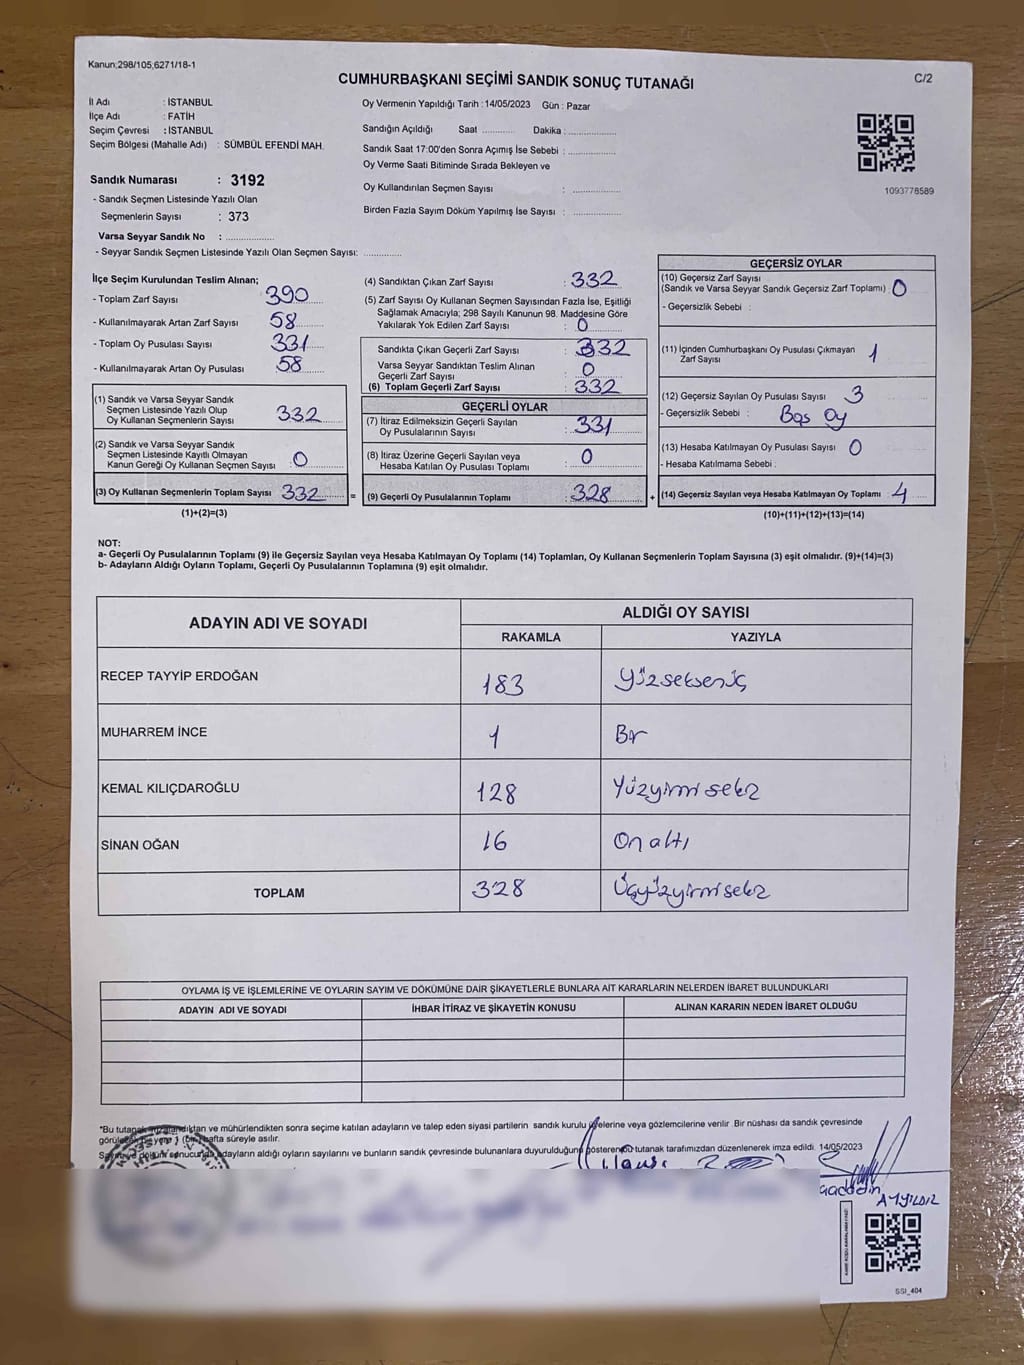 Kanun;298/105,6271/18-1
CUMHURBAŞKANI SEÇİMİ SANDIK SONUÇ TUTANAĞI
C/2
İl Adı : İSTANBUL
İlçe Adı : FATİH
Seçim Çevresi : İSTANBUL
Seçim Bölgesi (Mahalle Adı) : SÜMBÜL EFENDİ MAH.
Sandık Numarası : 3192
- Sandık Seçmen Listesinde Yazılı Olan
Seçmenlerin Sayısı : 373
Varsa Seyyar Sandık No : ..............
- Seyyar Sandık Seçmen Listesinde Yazılı Olan Seçmen Sayısı: ............
Oy Vermenin Yapıldığı Tarih : 14/05/2023 Gün : Pazar
Sandığın Açıldığı Saat ........... Dakika : ..............
Sandık Saat 17:00'den Sonra Açımış İse Sebebi : ..............
Oy Verme Saati Bitiminde Sırada Bekleyen ve
Oy Kullandırılan Seçmen Sayısı : ..............
Birden Fazla Sayım Döküm Yapılmış İse Sayısı : ..............
1093778589
İlçe Seçim Kurulundan Teslim Alınan;
- Toplam Zarf Sayısı 390
- Kullanılmayarak Artan Zarf Sayısı 58
- Toplam Oy Pusulası Sayısı 331
- Kullanılmayarak Artan Oy Pusulası 58
(1) Sandık ve Varsa Seyyar Sandık
Seçmen Listesinde Yazılı Olup
Oy Kullanan Seçmenlerin Sayısı 332
(2) Sandık ve Varsa Seyyar Sandık
Seçmen Listesinde Kayıtlı Olmayan
Kanun Gereği Oy Kullanan Seçmen Sayısı : 0
(3) Oy Kullanan Seçmenlerin Toplam Sayısı 332
(1)+(2)=(3)
=
(4) Sandıktan Çıkan Zarf Sayısı : 332
(5) Zarf Sayısı Oy Kullanan Seçmen Sayısından Fazla İse, Eşitliği
Sağlamak Amacıyla; 298 Sayılı Kanunun 98. Maddesine Göre
Yakılarak Yok Edilen Zarf Sayısı : 0
Sandıkta Çıkan Geçerli Zarf Sayısı : 332
Varsa Seyyar Sandıktan Teslim Alınan
Geçerli Zarf Sayısı : 0
(6) Toplam Geçerli Zarf Sayısı : 332
GEÇERLİ OYLAR
(7) İtiraz Edilmeksizin Geçerli Sayılan
Oy Pusulalarının Sayısı : 331
(8) İtiraz Üzerine Geçerli Sayılan veya
Hesaba Katılan Oy Pusulası Toplamı : 0
(9) Geçerli Oy Pusulalarının Toplamı : 328
+
GEÇERSİZ OYLAR
(10) Geçersiz Zarf Sayısı
(Sandık ve Varsa Seyyar Sandık Geçersiz Zarf Toplamı) : 0
- Geçersizlik Sebebi :
(11) İçinden Cumhurbaşkanı Oy Pusulası Çıkmayan
Zarf Sayısı : 1
(12) Geçersiz Sayılan Oy Pusulası Sayısı : 3
- Geçersizlik Sebebi : Boş Oy
(13) Hesaba Katılmayan Oy Pusulası Sayısı : 0
- Hesaba Katılmama Sebebi :
(14) Geçersiz Sayılan veya Hesaba Katılmayan Oy Toplamı : 4
(10)+(11)+(12)+(13)=(14)
NOT:
a- Geçerli Oy Pusulalarının Toplamı (9) ile Geçersiz Sayılan veya Hesaba Katılmayan Oy Toplamı (14) Toplamları, Oy Kullanan Seçmenlerin Toplam Sayısına (3) eşit olmalıdır. (9)+(14)=(3)
b- Adayların Aldığı Oyların Toplamı, Geçerli Oy Pusulalarının Toplamına (9) eşit olmalıdır.
ADAYIN ADI VE SOYADI
ALDIĞI OY SAYISI
RAKAMLA YAZIYLA
RECEP TAYYİP ERDOĞAN 183 Yüzseksenüç
MUHARREM İNCE 1 Bir
KEMAL KILIÇDAROĞLU 128 Yüzyirmi sekiz
SİNAN OĞAN 16 On altı
TOPLAM 328 Üçyüzyirmi sekiz
OYLAMA İŞ VE İŞLEMLERİNE VE OYLARIN SAYIM VE DÖKÜMÜNE DAİR ŞİKAYETLERLE BUNLARA AİT KARARLARIN NELERDEN İBARET BULUNDUKLARI
ADAYIN ADI VE SOYADI İHBAR İTİRAZ VE ŞİKAYETİN KONUSU ALINAN KARARIN NEDEN İBARET OLDUĞU
*Bu tutanak imzalandıktan ve mühürlendikten sonra seçime katılan adayların ve talep eden siyasi partilerin sandık kurulu üyelerine veya gözlemcilerine verilir .Bir nüshası da sandık çevresinde
görülebilen bir yere 1 (bir) hafta süreyle asılır.
Sayım ve döküm sonucunda adayların aldığı oyların sayılarını ve bunların sandık çevresinde bulunanlara duyurulduğunu gösteren bu tutanak tarafımızdan düzenlenerek imza edildi. 14/05/2023
AYYILDIZ
SSI_404